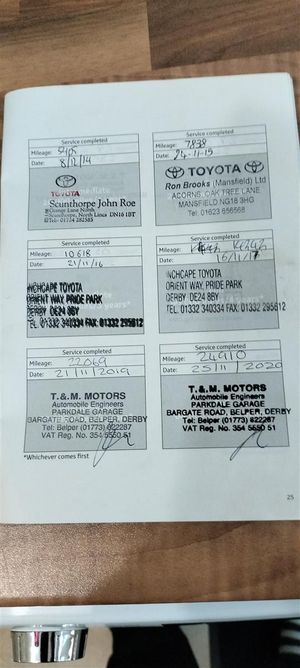 Service completed
Mileage: 5405
Date: 8/12/14
TOYOTA
Scunthorpe John Roe
Grange Lane North
Scunthorpe, North Lincs DN16 1BT
Tel: 01724 282585
Service completed
Mileage: 7838
Date: 24-11-15
TOYOTA
Ron Brooks (Mansfield) Ltd
ACORNS, OAK TREE LANE
MANSFIELD NG18 3HG
Tel. 01623 656568
Service completed
Mileage: 10618
Date: 21/11/16
INCHCAPE TOYOTA
ORIENT WAY, PRIDE PARK
DERBY DE24 8BY
TEL. 01332 340334 FAX: 01332 295612
Service completed
Mileage:
Date: 16/11/17
INCHCAPE TOYOTA
ORIENT WAY, PRIDE PARK
DERBY DE24 8BY
TEL. 01332 340334 FAX: 01332 295612
Service completed
Mileage: 22069
Date: 21/11/2019
T.&M. MOTORS
Automobile Engineers
PARKDALE GARAGE
BARGATE ROAD, BELPER, DERBY
Tel: Belper (01773) 822287
VAT Reg. No. 354 5650 51
Service completed
Mileage: 24910
Date: 25/11/2020
T.&M. MOTORS
Automobile Engineers
PARKDALE GARAGE
BARGATE ROAD, BELPER, DERBY
Tel: Belper (01773) 822287
VAT Reg. No. 354 5650 51
*Whichever comes first
25